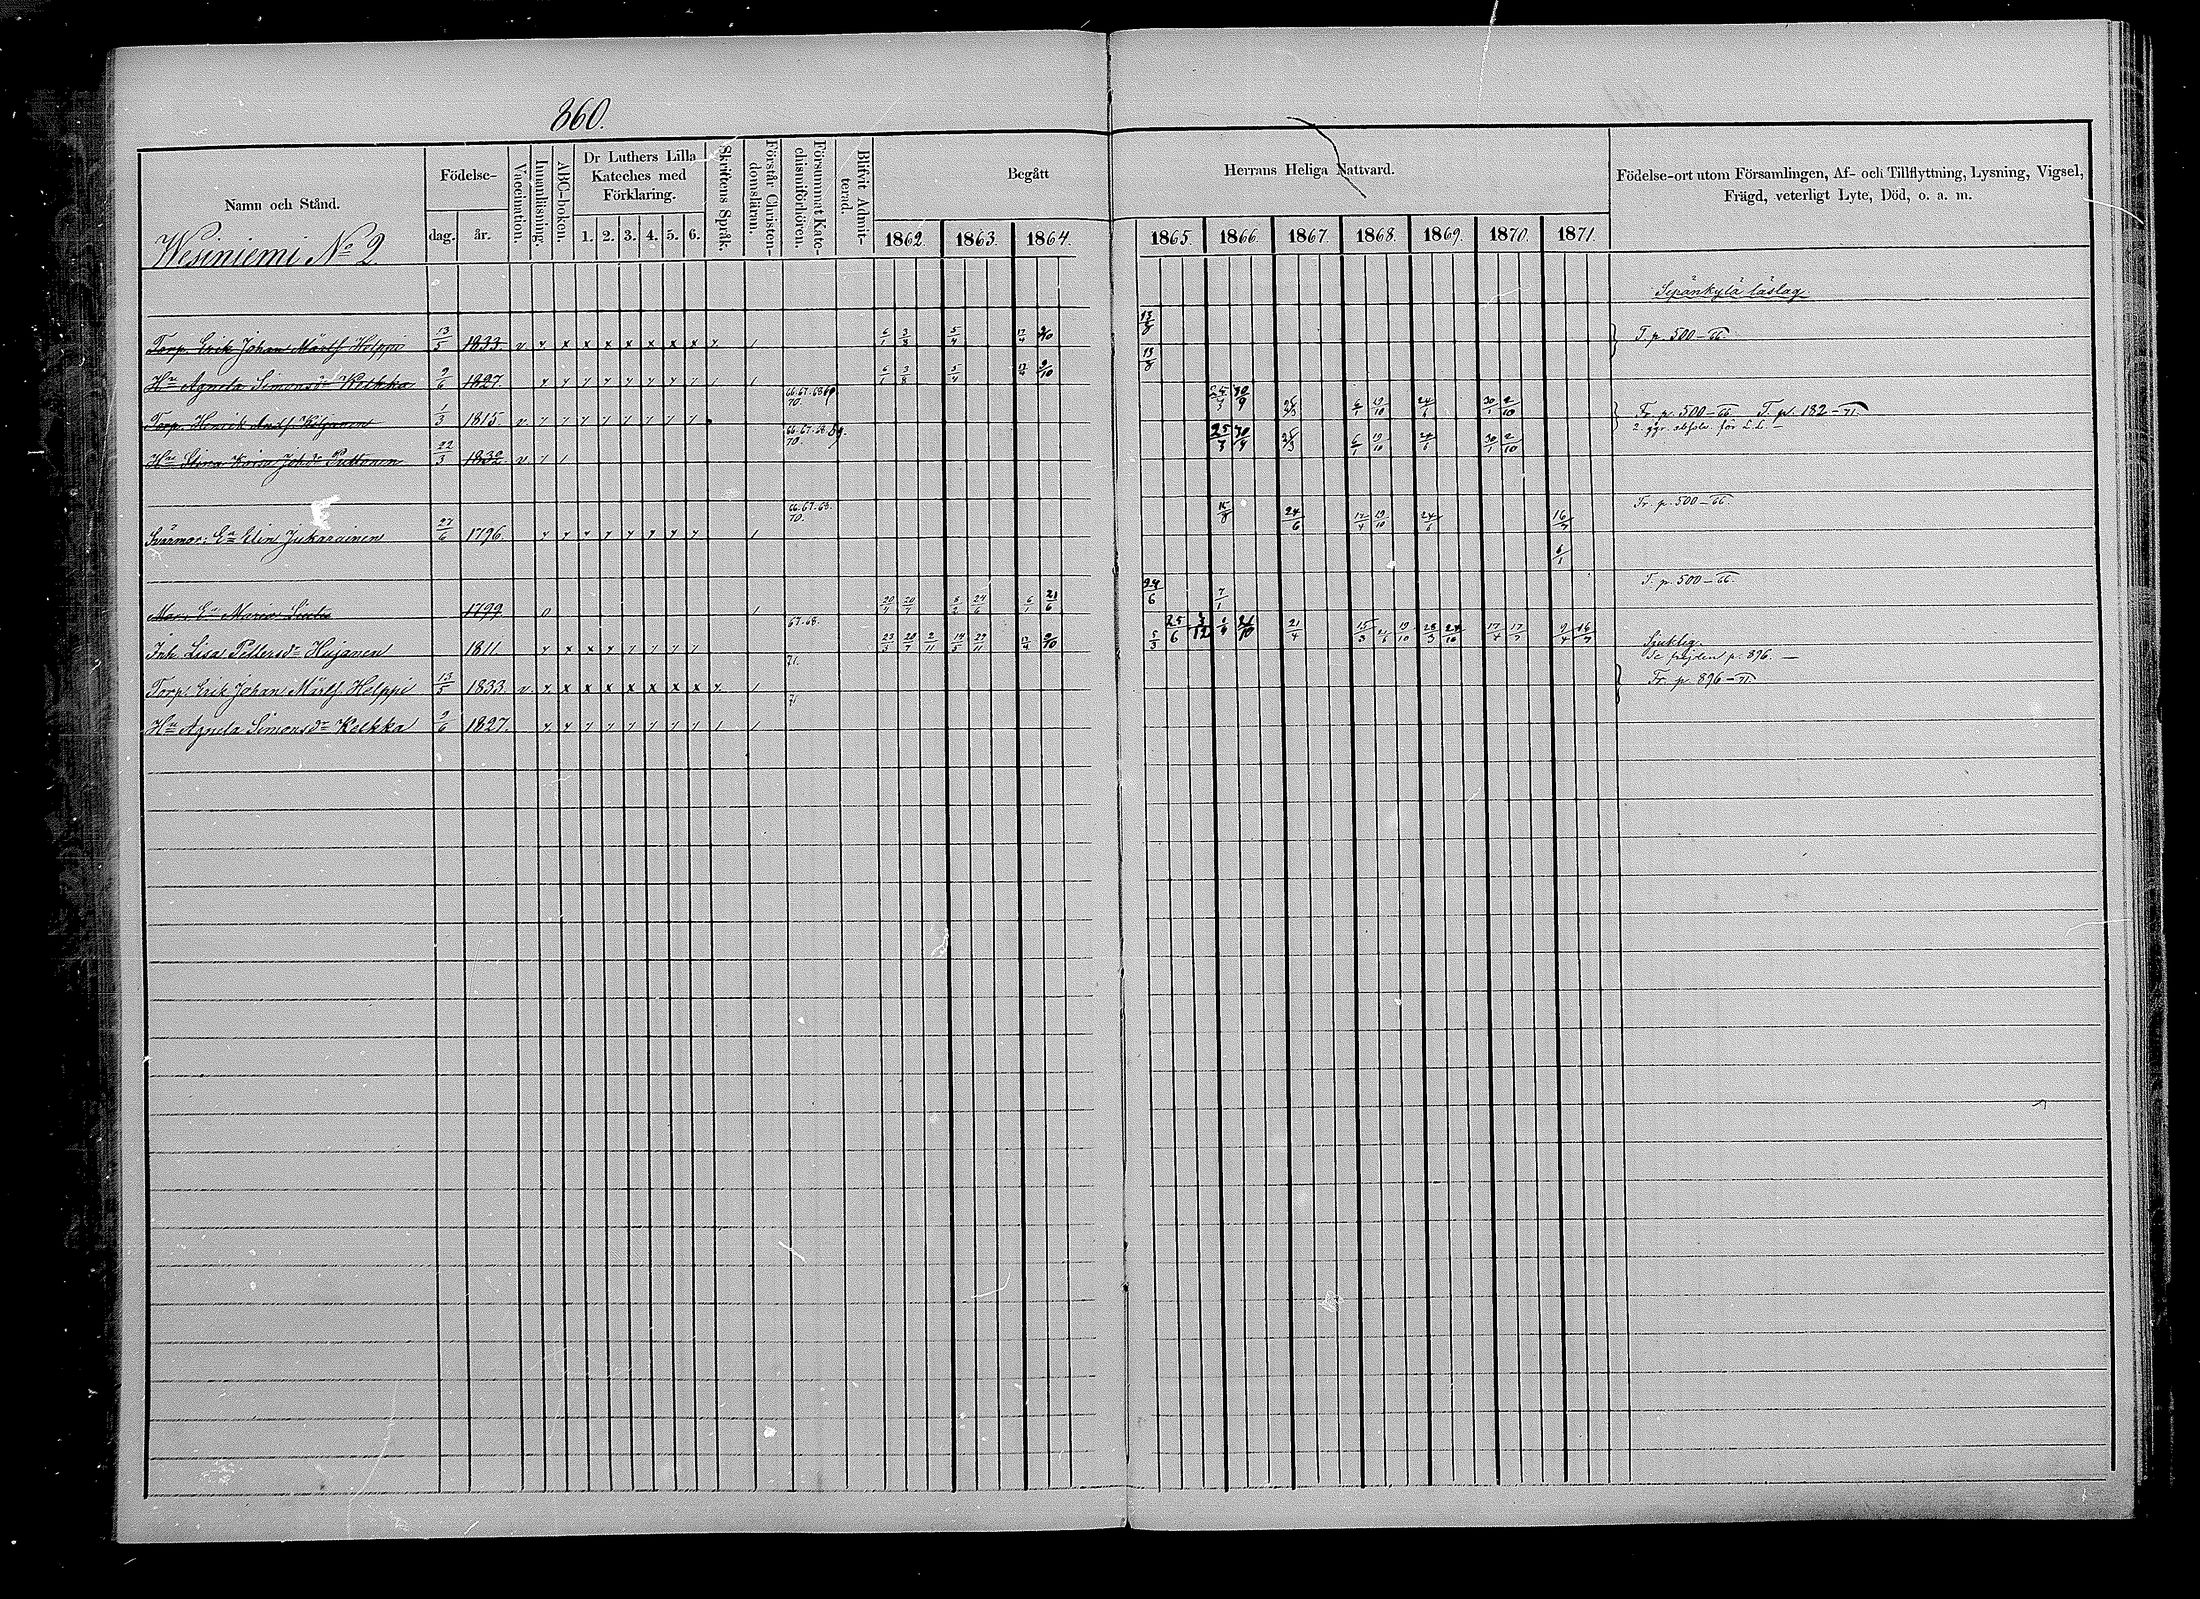 860.
Namn och Stånd.
Födelse-
dag.
år.
Vaccination.
Innanläsning.
ABC-boken.
Dr Luthers Lilla
Kateches med
Förklaring.
1. 2. 3. 4. 5. 6.
Skriftens Språk.
Förstår Christen-
domslären.
Försummat Kate-
chismiförhören.
Blifvit Admit-
terad.
Begått
1862. 1863. 1864.
Herrans Heliga Nattvard.
1865. 1866. 1867. 1868. 1869. 1870. 1871.
Födelse-ort utom Församlingen, Af- och Tillflyttning, Lysning, Vigsel,
Frägd, veterligt Lyte, Död, o. a. m.
Wesiniemi No 2
Sepänkylä läslag
Torp. Erik Johan Märtf. Helppi 13/5 1833. v 6/1 3/8 5/4 17/4 9/10 13/8 T. p. 500-66.
Hu Agneta Simonsdr Kelkka 9/6 1827. 6/1 3/8 5/4 17/4 9/10 13/8
Torp. Henrik Andf. Kiljanen 1/3 1815. v 66.67.68.69. 70. 25/3 30/9 25/3 6/1 19/10 24/6 30/1 2/10 Fr. p. 500-66. T. p. 182-71.
2. ggr. för L.L.
Hu Stina Kaisa Johdr Puttonen 22/3 1832 v 66.67.68.69. 70. 25/3 30/9 25/3 6/1 19/10 24/6 30/1 2/10
Svärmor: En Elin Jukarainen 27/6 1796. 66.67.68. 70. 24/6 17/4 19/10 24/6 16/7 Fr. p. 500-66.
6/1
En Maria 1799 20/4 20/7 8/2 24/6 6/1 21/6 24/6 7/1 T. p. 500-66.
Inh. Lisa Pettersdr Hujanen 1811 67.68. 23/3 20/7 2/11 14/5 29/11 17/4 9/10 5/3 25/6 21/10 21/4 15/3 21/6 19/10 28/3 24/10 17/4 17/7 9/4 16/7 Sjuklig.
Se frejden p. 896.
Torp. Erik Johan Märtf. Helppi 13/5 1833. v 71. Fr. p. 896-71.
Hu Agneta Simonsdr Kelkka 9/6 1827. 71